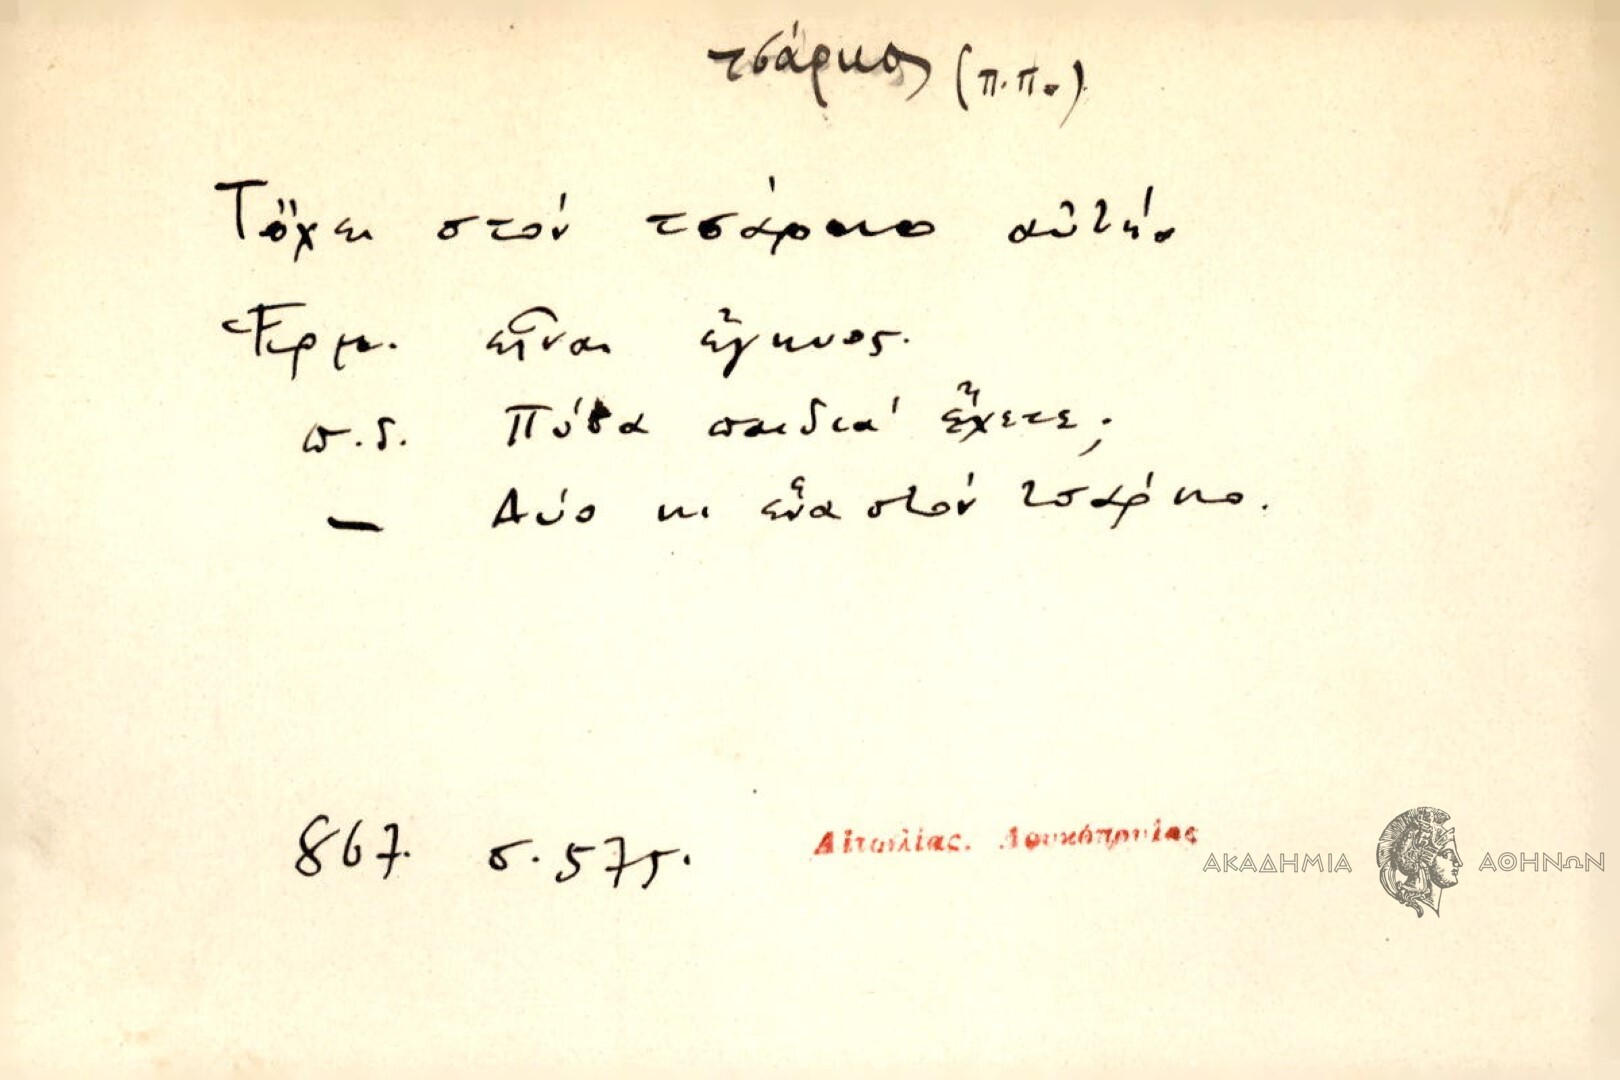 τσάρκος (π.π.)
Τὄχει στόν τσάρκο αὐτή.
Ἑρμ. εἶναι ἔγκυος.
π.δ. Πόσα παιδιά ἔχετε;
— Δύο κι ἕνα στόν τσάρκο.
867. σ. 575.
Αἰτωλίας. Λουκόπουλος
ΑΚΑΔΗΜΙΑ ΑΘΗΝΩΝ